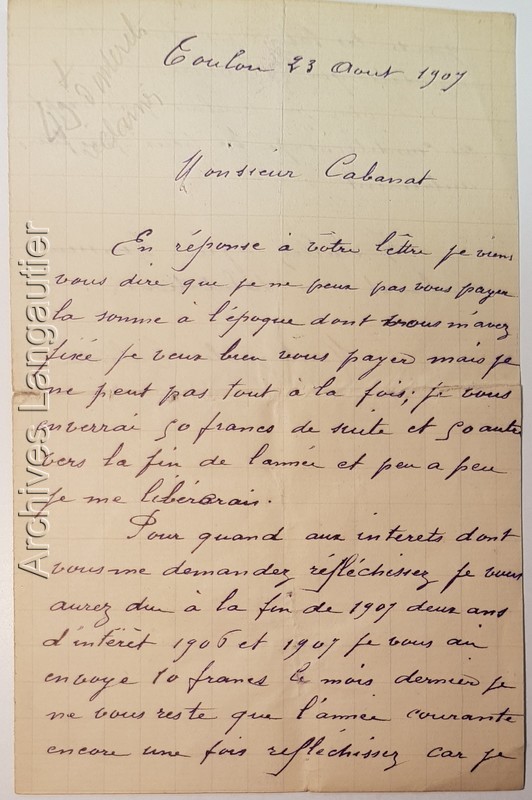 Toulon 23 Aout 1907
d'interêt
réclamés
Monsieur Cabanat
En réponse à vôtre lêttre je viens
vous dire que je ne peux pas vous payer
la somme à l'époque dont vous m'avez
fixé je veux bien vous payer mais je
ne peut pas tout à la fois; je vous
enverrai 50 francs de suite et 50 autre
vers la fin de l'année et peu a peu
je me libérerais.
Pour quand aux interets dont
vous me demandez réfléchissez je vous
aurez du à la fin de 1907 deux ans
d'intérêt 1906 et 1907 je vous ai
envoye 10 francs le mois dernier je
ne vous reste que l'année courante
encore une fois refléchissez car je
Archives Langautier